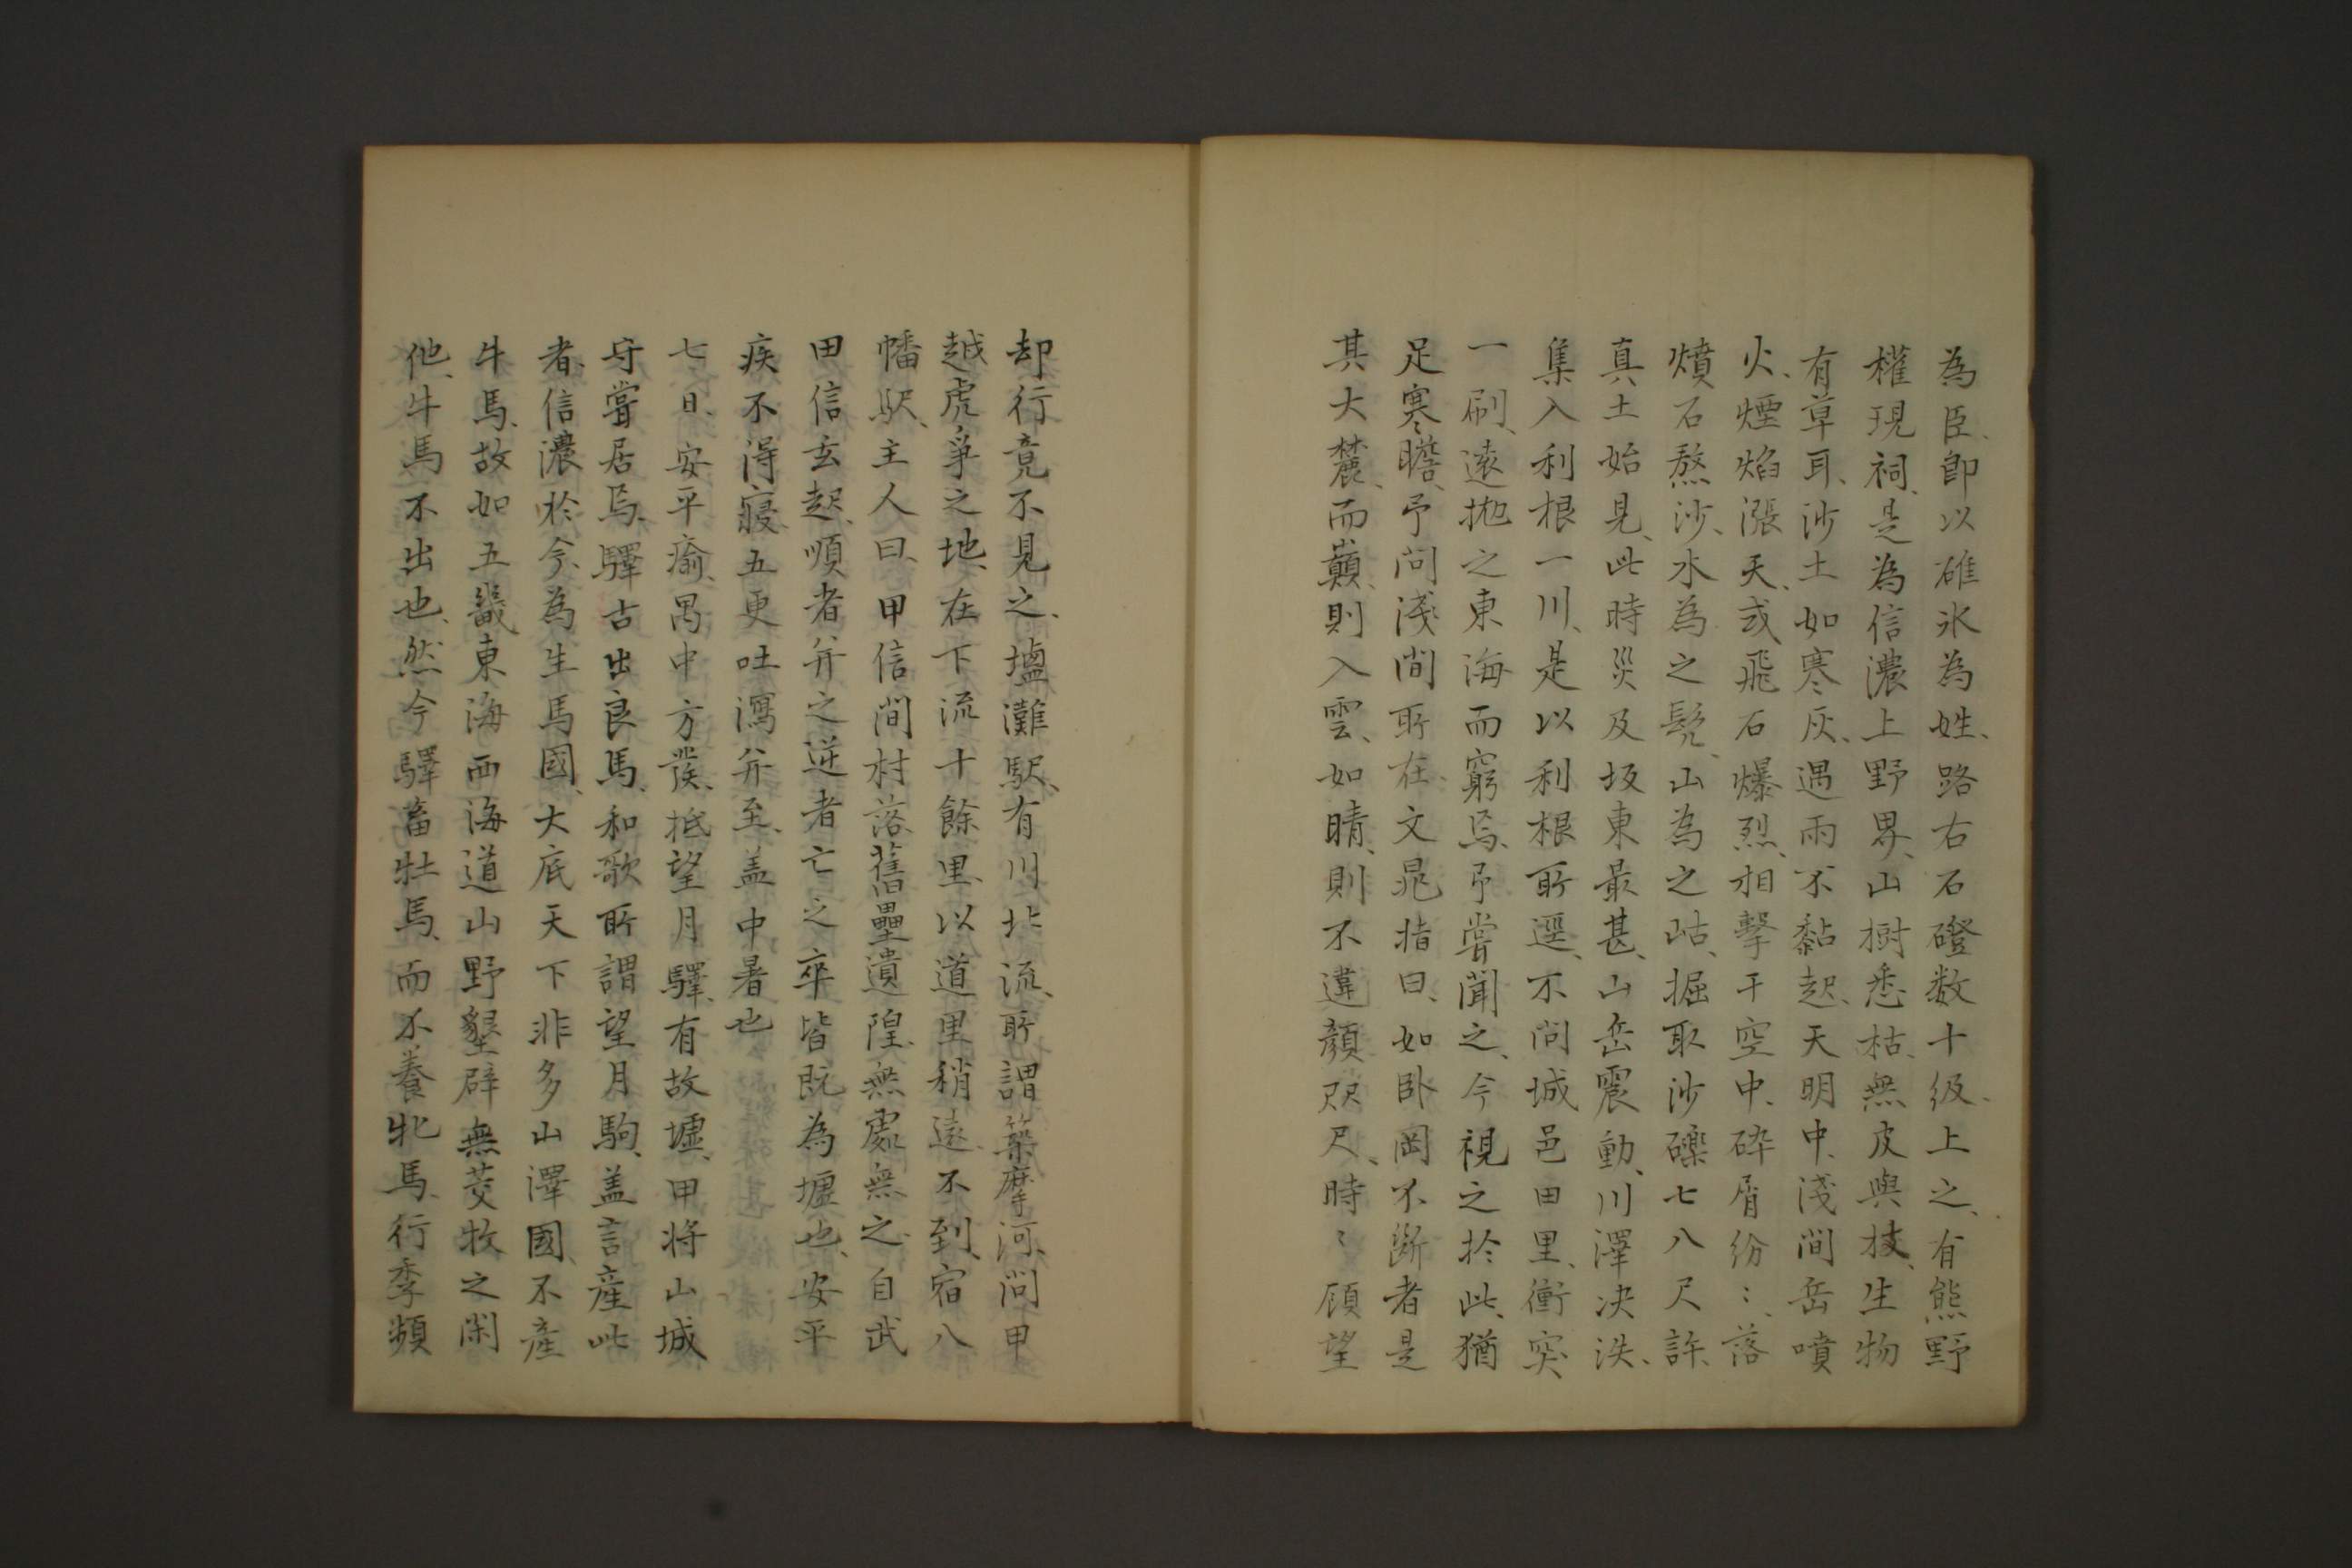 為臣、即以碓氷為姓、路右石磴数十級、上之、有熊野
權現祠、是為信濃上野界、山樹悉枯、無皮與枝、生物
有草耳、沙土如寒灰、遇雨不黏起、天明中、淺間岳噴
火、煙焰漲天、或飛石爆烈、相擊于空中、碎屑紛〻、落
燌石熬沙、水為之髡、山為之岵、掘取沙礫七八尺許、
真土始見、此時災及坂東最甚、山岳震動、川澤決泆、
集入利根一川、是以利根所逕、不問城邑田里、衝突
一刷、遠拋之東海而窮焉、予嘗聞之、今視之於此、猶
足寒瞻、予問淺間所在、文晁指曰、如臥岡不断者是
其大麓、而巔、則入雲、如晴、則不違顏咫尺、時〻顧望
却行竟不見之、塩灘駅、有川北流、所謂築摩河、問甲
越虎爭之地、在下流十餘里、以道里稍遠、不到、宿八
幡駅、主人曰、甲信間村落舊壘遺隍、無處無之、自武
田信玄起、順者并之逆者亡之、卒皆既為墟也、安平
疾不得寢、五更吐瀉并至、盖中暑也
七日、安平瘉、禺中方發、抵望月驛、有故墟、甲将山城
守嘗居焉、驛古出良馬、和歌所謂望月駒、盖言產此
者、信濃於今、為生馬國、大底天下非多山澤國、不產
牛馬、故如五畿東海西海道山野墾辟無芟牧之閑
他、牛馬不出也、然今驛畜牡馬、而不養牝馬、行李頻